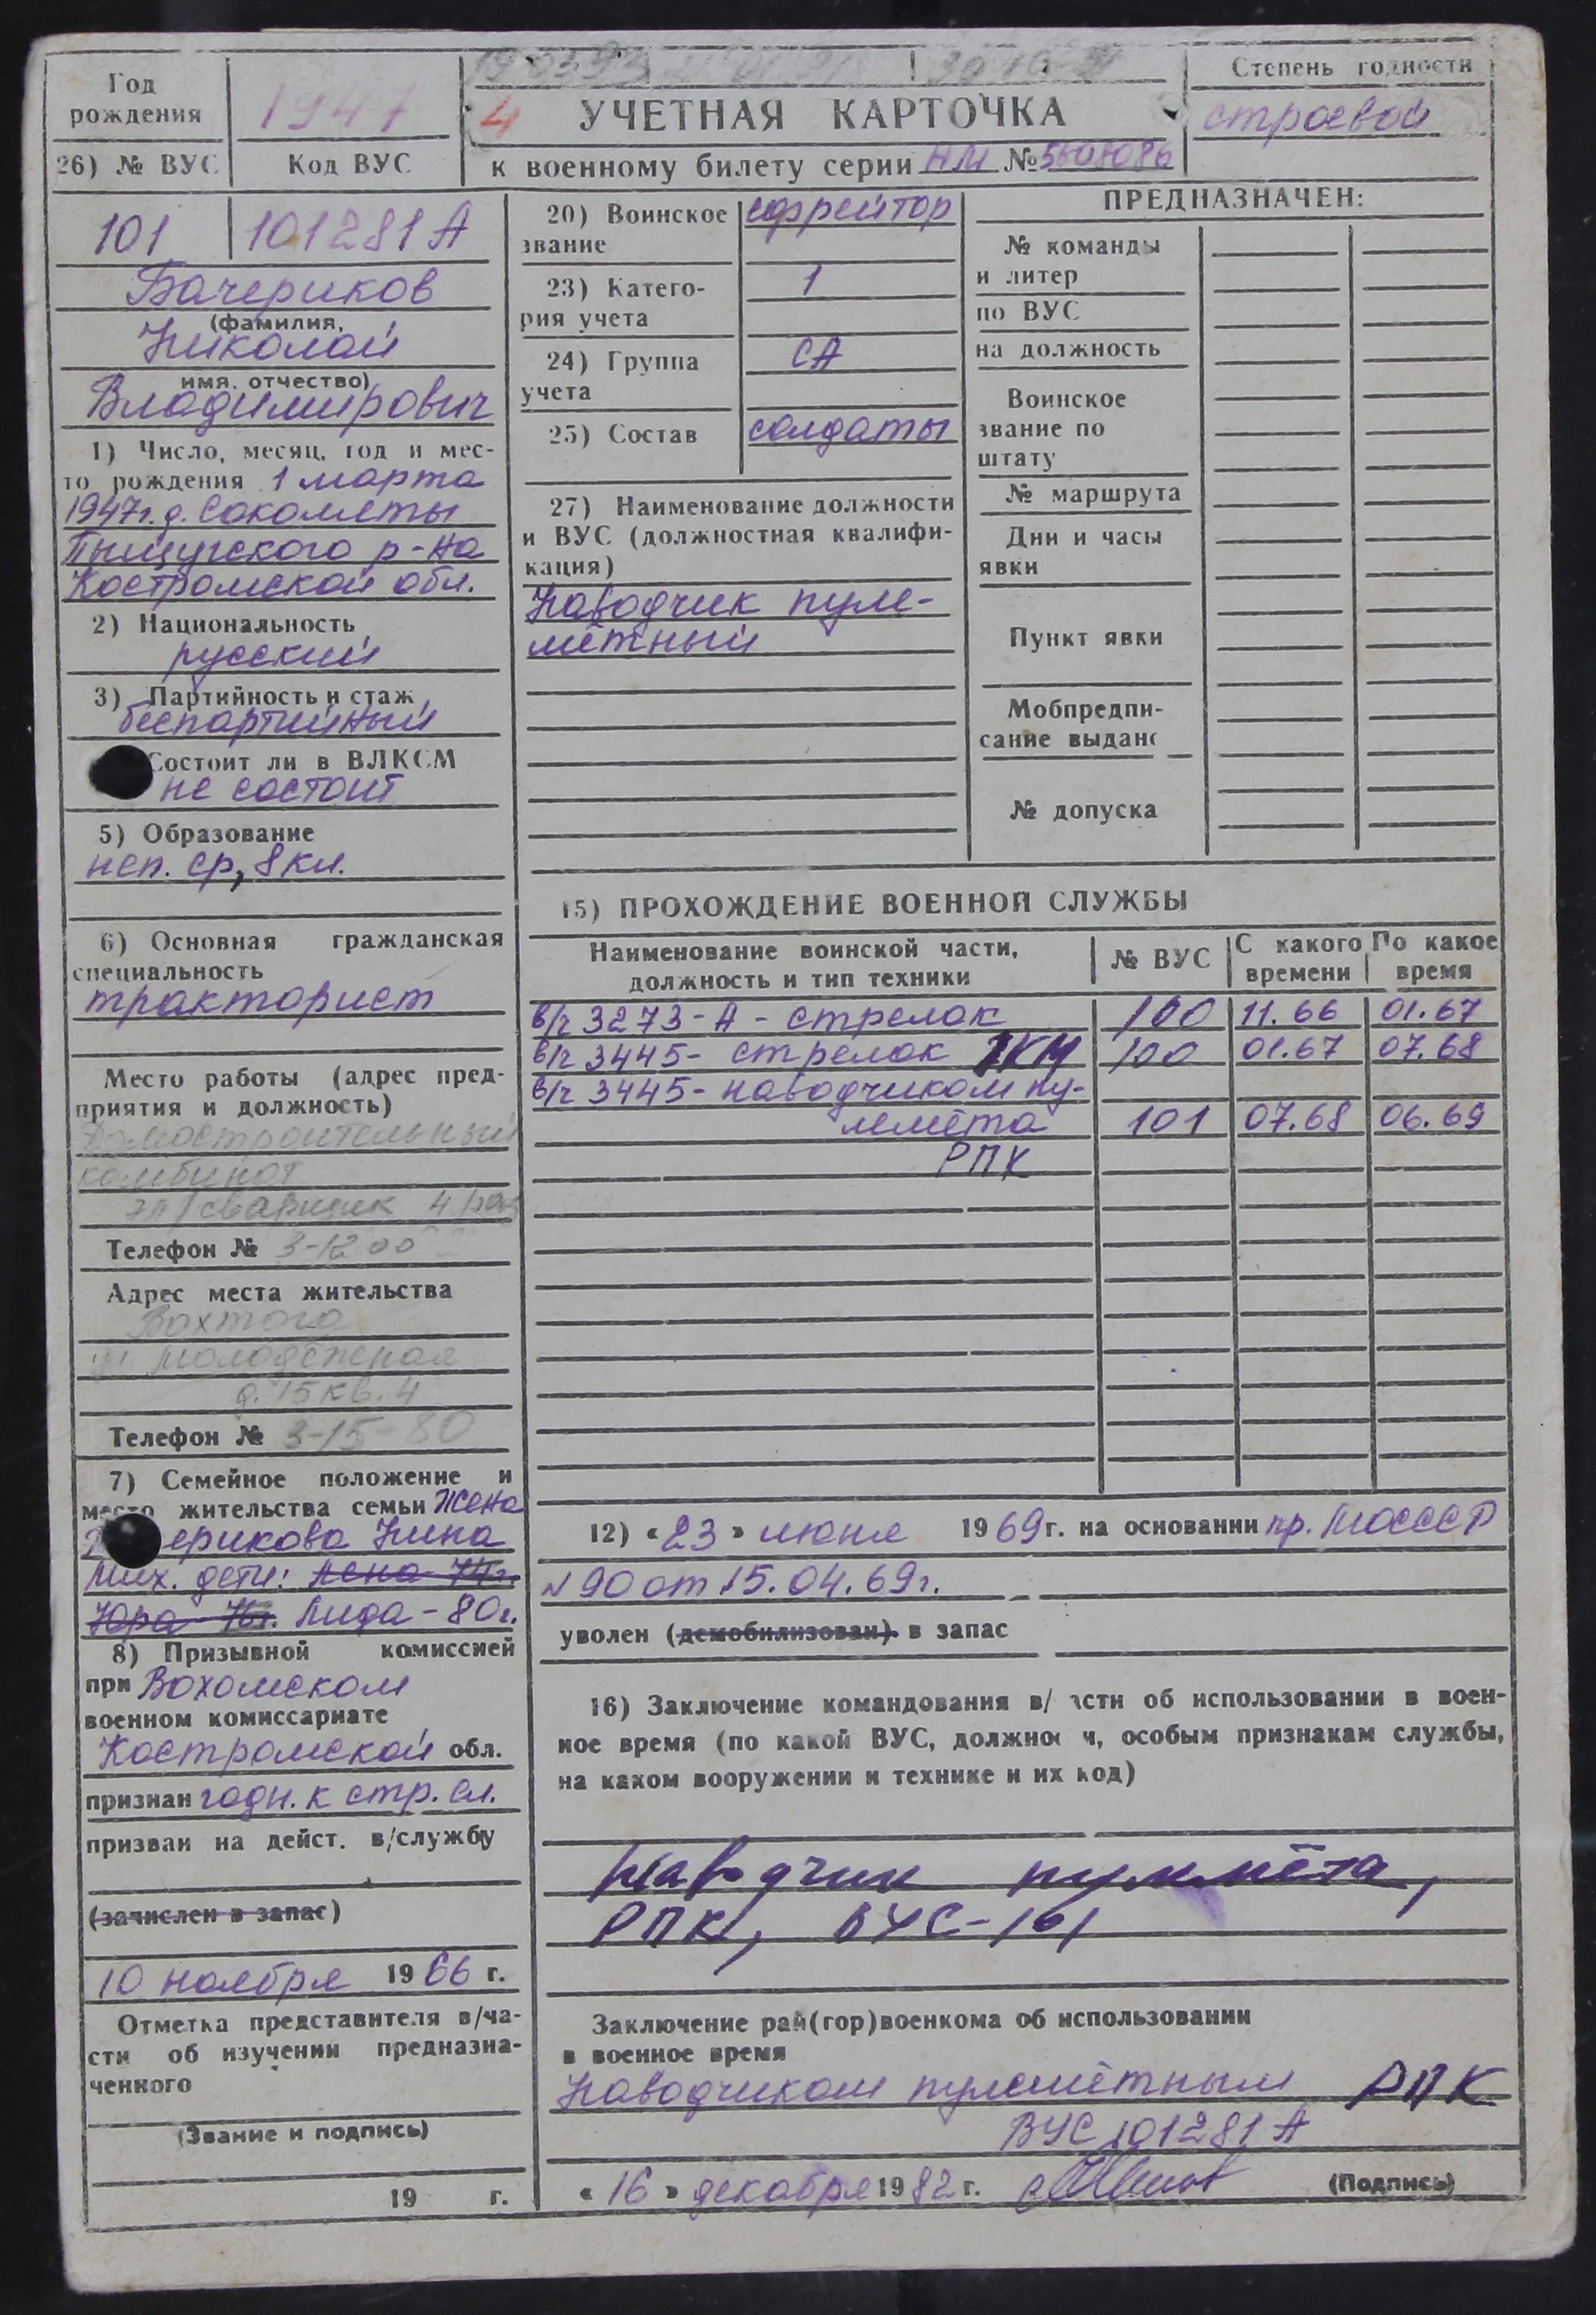 Год
рождения
1947
26) № ВУС
Код ВУС
4
УЧЕТНАЯ КАРТОЧКА
к военному билету серии НМ №
Степень годности
строевой
101
101281А
Бачериков
(фамилия,
Николай
имя, отчество)
Владимирович
1) Число, месяц, год и мес-
то рождения 1 марта
1947г. д. Сокометы
Пыщугского р-на
Костромской обл.
2) Национальность
русский
3) Партийность и стаж
беспартийный
Состоит ли в ВЛКСМ
не состоит
5) Образование
неп. ср, 8 кл.
6) Основная гражданская
специальность
тракторист
Место работы (адрес пред-
приятия и должность)
Домостроительный
комбинат
эл/сварщик 4 раз
Телефон № 3-12 00
Адрес места жительства
Вохтога
ул Молодежная
д. 15 кв. 4
Телефон № 3-15-80
7) Семейное положение и
место жительства семьи Жена
ерикова Нина
Мих. дети: Лена 74г.
Юра 76г. Лида - 80г.
8) Призывной комиссией
при Вохомском
военном комиссариате
Костромской обл.
признан годн. к стр. сл.
призван на дейст. в/службу
(зачислен в запас)
10 ноября 1966 г.
Отметка представителя в/ча-
сти об изучении предназна-
ченного
(Звание и подпись)
19 г.
20) Воинское
звание
ефрейтор
23) Катего-
рия учета
1
24) Группа
учета
СА
25) Состав
солдаты
27) Наименование должности
и ВУС (должностная квалифи-
кация)
Наводчик пуле-
мётный
ПРЕДНАЗНАЧЕН:
№ команды
и литер
по ВУС
на должность
Воинское
звание по
штату
№ маршрута
Дни и часы
явки
Пункт явки
Мобпредпи-
сание выдано
№ допуска
15) ПРОХОЖДЕНИЕ ВОЕННОЙ СЛУЖБЫ
Наименование воинской части,
должность и тип техники
№ ВУС
С какого
времени
По какое
время
в/ч 3273-А - стрелок 100 11.66 01.67
в/ч 3445- стрелок ПКМ 100 01.67 07.68
в/ч 3445- наводчиком пу-
лемёта 101 07.68 06.69
РПК
12) «23» июня 1969г. на основании пр. МОСССР
N 90 от 15.04.69г.
уволен (демобилизован) в запас
16) Заключение командования в/ части об использовании в воен-
ное время (по какой ВУС, должности, особым признакам службы,
на каком вооружении и технике и их код)
Наводчик пулемёта,
РПК, ВУС-101
Заключение рай(гор)военкома об использовании
в военное время
Наводчиком пулемётным РПК
ВУС 101281А
«16» декабря 1982г.
(Подпись)